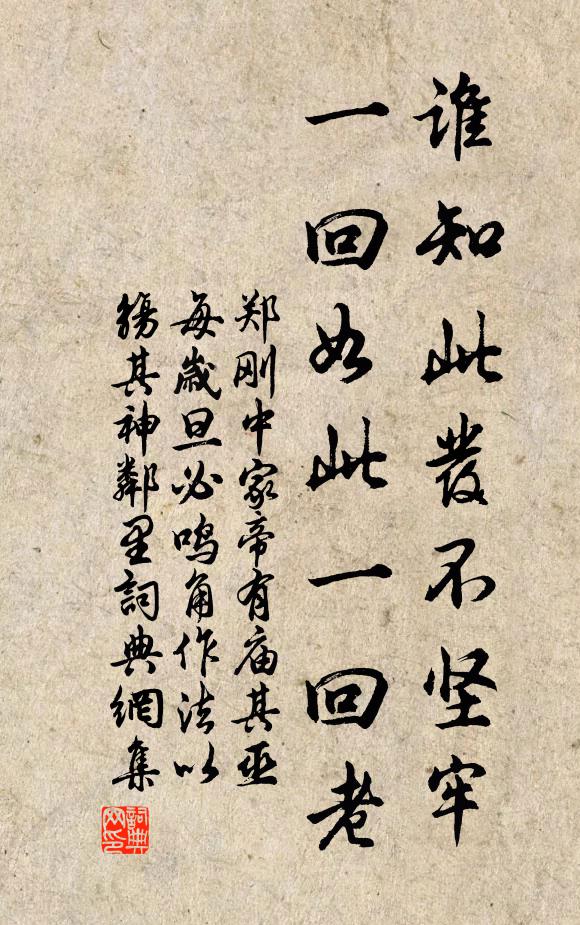 谁知此发不坚牢
一回如此一回老
郑刚中家帝有庙其巫
每岁旦必鸣角作法以
殇其神鄰里詞典網集
詞典网印